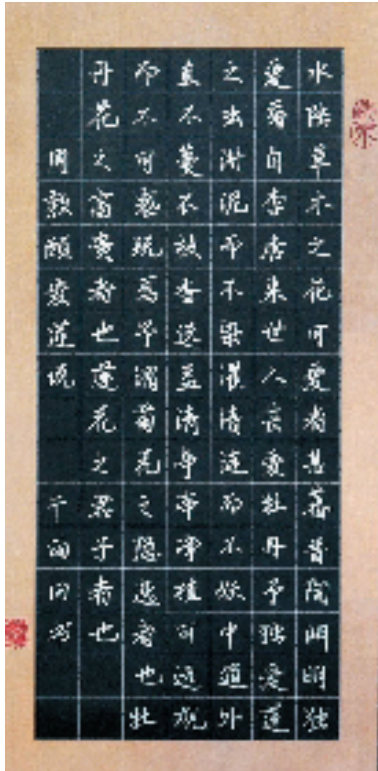 水陸草木之花可愛者甚蕃晋陶渊明独
愛菊自李唐来世人言愛牡丹予独愛蓮
之出淤泥而不染濯清漣而不妖中通外
直不蔓不枝香远益清亭亭净植可远观
而不可亵玩焉予谓菊花之隐逸者也牡
丹花之富貴者也蓮花之君子者也
周敦頤愛蓮说